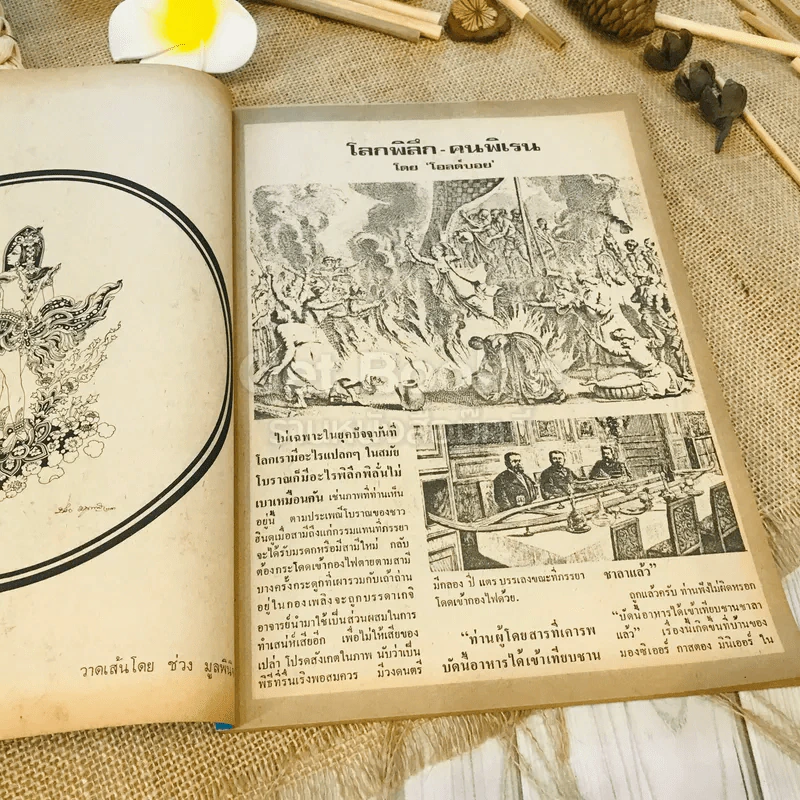 วาดเส้นโดย ช่วง มูลพินิ
โลกพิลึก - คนพิเรน
โดย 'โอลด์บอย'
ไม่เฉพาะในยุคปัจจุบันที่
โลกเรามีอะไรแปลกๆ ในสมัย
โบราณก็มีอะไรพิลึกพิลั่นไม่
เบาเหมือนกัน เช่นภาพที่ท่านเห็น
อยู่นี้ ตามประเพณีโบราณของชาว
ฮินดูเมื่อสามีถึงแก่กรรมแทนที่ภรรยา
จะได้รับมรดกหรือมีสามีใหม่ กลับ
ต้องกระโดดเข้ากองไฟตายตามสามี
บางครั้งกระดูกที่เผารวมกับเถ้าถ่าน
อยู่ในกองเพลิงจะถูกบรรดาเกจิ
อาจารย์นำมาใช้เป็นส่วนผสมในการ
ทำเสน่ห์เสียอีก เพื่อไม่ให้เสียของ
เปล่า โปรดสังเกตในภาพ นับว่าเป็น
พิธีที่รื่นเริงพอสมควร มีวงดนตรี
มีกลอง ปี่ แตร บรรเลงขณะที่ภรรยา
โดดเข้ากองไฟด้วย.
"ท่านผู้โดยสารที่เคารพ
บัดนี้อาหารได้เข้าเทียบชาน
ชาลาแล้ว"
ถูกแล้วครับ ท่านฟังไม่ผิดหรอก
"บัดนี้อาหารได้เข้าเทียบชานชาลา
แล้ว" เรื่องนี้เกิดขึ้นที่บ้านของ
มองซิเออร์ กาสตอง มินิเออร์ ใน